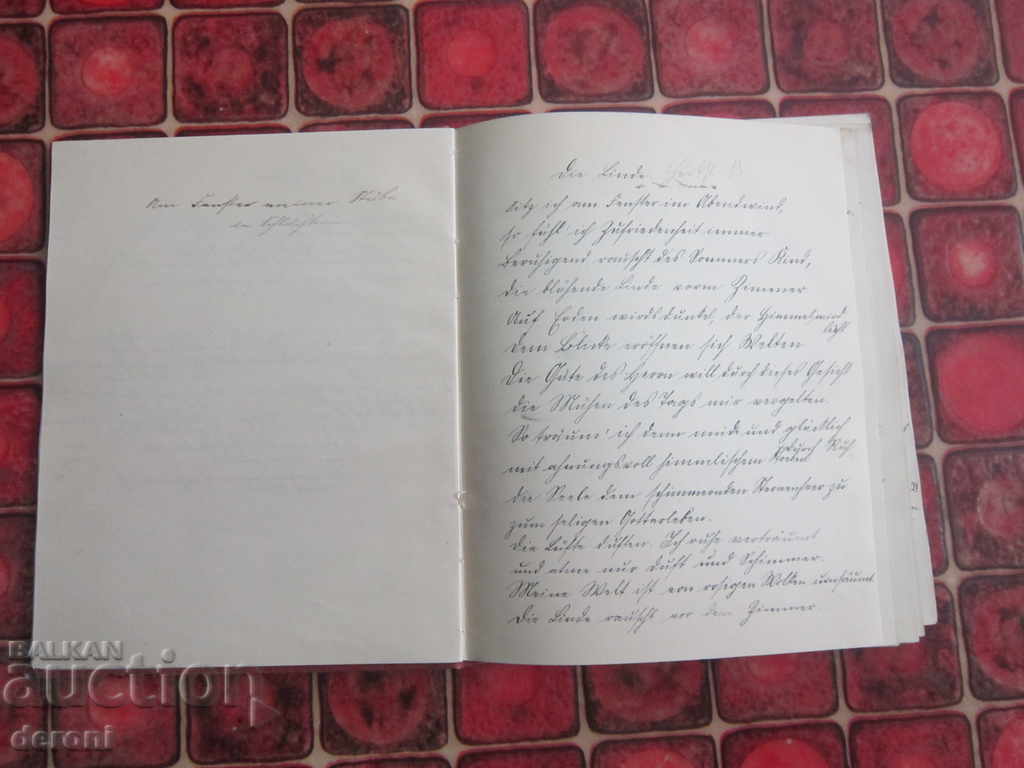 Am Fenster meiner Stube
Die Linde
Sitz ich am Fenster im Abendwind,
so fühl ich Zufriedenheit immer
Beruhigend rauscht des Sommers Kind,
die blühende Linde vorm Zimmer
Auf Erden wirds dunkel, der Himmel wird
licht
dem Blicke eröffnen sich Welten
Die Güte des Herrn will durch dieses Gesicht
die Mühen des Tags mir vergelten.
So träum' ich denn müde und glücklich
durch Ruh
mit ahnungsvoll himmlischem
die Seele dem schimmernden Sternenheer zu
zum seligen Götterleben.
Die Lüfte duften. Ich ruhe verträumt
und atme nur Duft und Schimmer.
Meine Welt ist von rosigen Wolken umsäumt
Die Linde rauscht vor dem Zimmer
BALKAN
auction
deroni